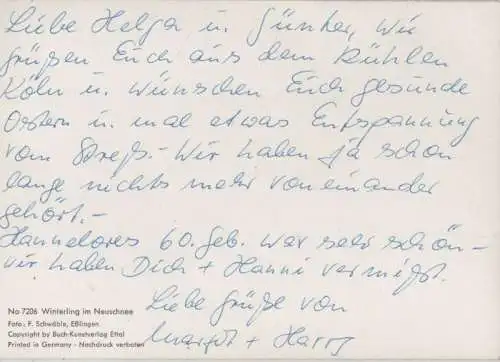 Liebe Helga u. Günther, wir
grüßen Euch aus dem kühlen
Köln u. wünschen Euch gesunde
Ostern u. mal etwas Entspannung
vom Streß.- Wir haben ja schon
lange nichts mehr voneinander
gehört.-
Hannelores 60. Geb. war sehr schön -
wir haben Dich + Hanni vermißt.
Liebe Grüße von
Margot + Harry
No 7206 Winterling im Neuschnee
Foto: F. Schwäble, Eßlingen
Copyright by Buch-Kunstverlag Ettal
Printed in Germany - Nachdruck verboten